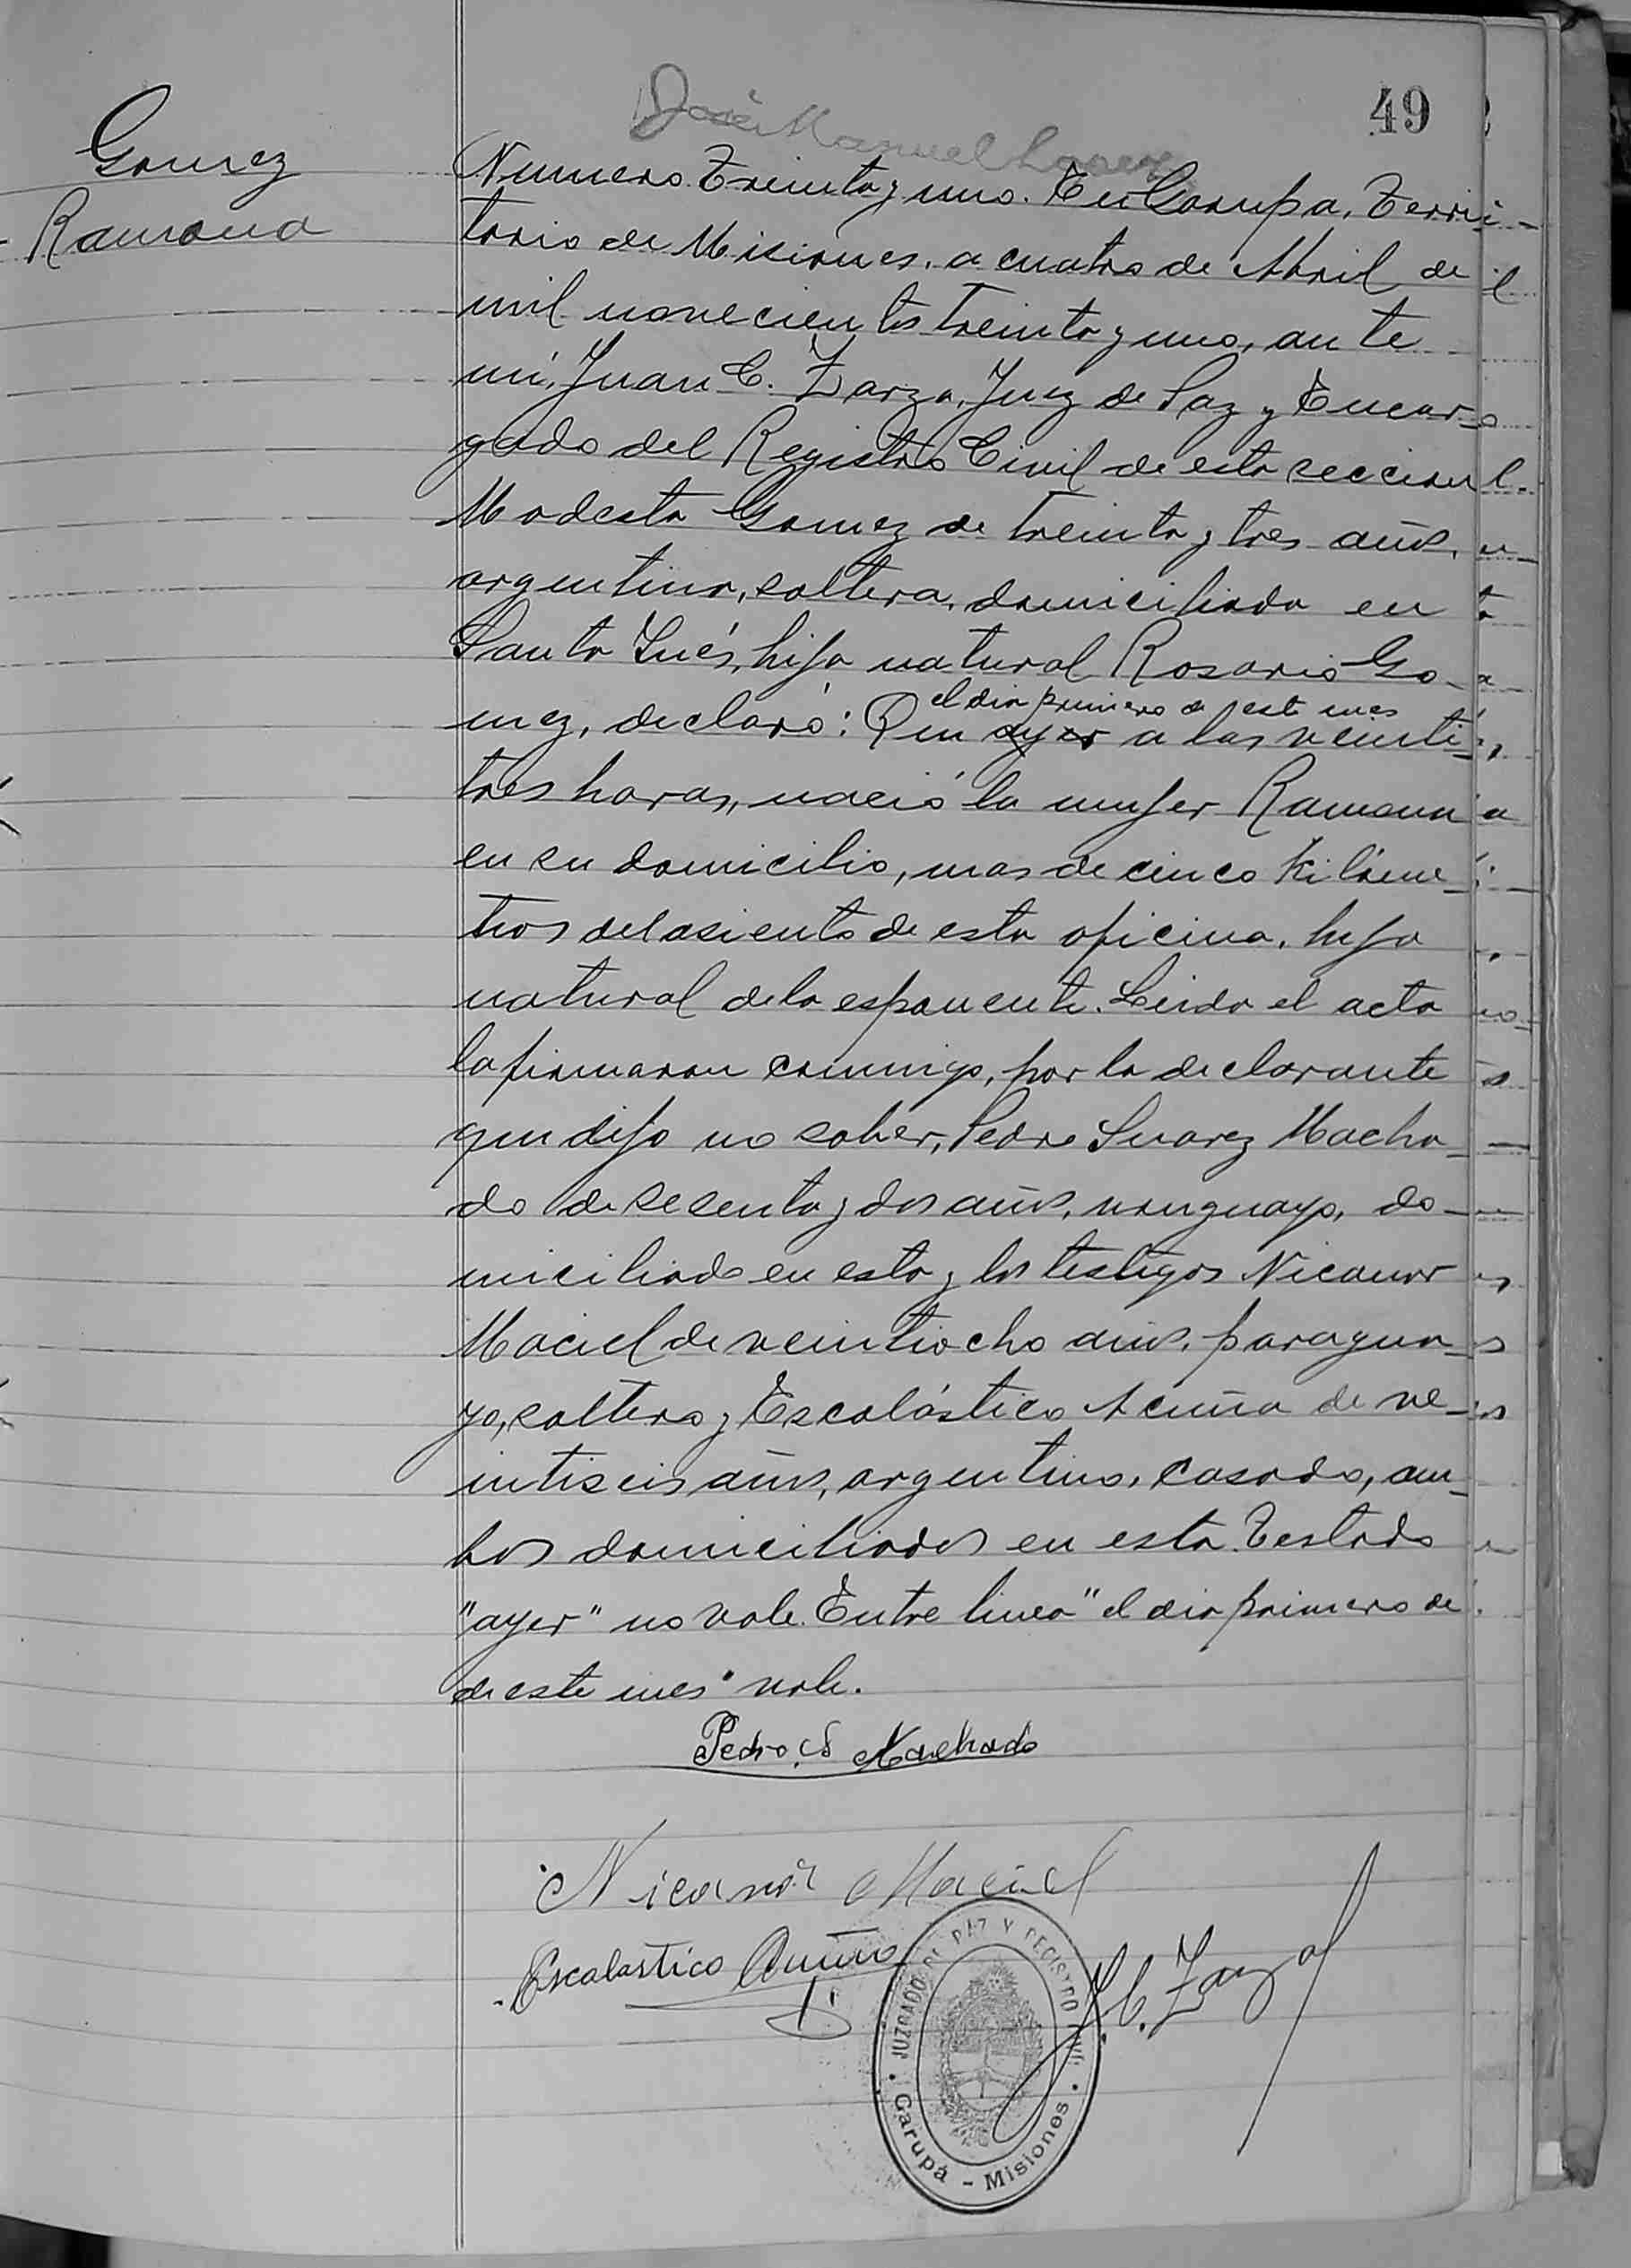 49
José Manuel
Gomez
Ramona
Numero Treinta y uno. En Garupa, Terri-
torio de Misiones, a cuatro de Abril de
mil novecientos treinta y uno, ante
mi, Juan C. Zarza, Juez de Paz y Encar-
gado del Registro Civil de esta seccion
Modesta Gomez de treinta y tres años,
argentina, soltera, domiciliada en
Santa Inés, hija natural Rosario Go-
el dia primero de este mes
mez, declaró: Que ayer a las veinti-
tres horas, nació la mujer Ramona
en su domicilio, mas de cinco kilome-
tros del asiento de esta oficina, hija
natural de la esponente. Leida el acta
la firmaron conmigo, por la declarante
que dijo no saber, Pedro Suarez Macha-
do de sesenta y dos años, uruguayo, do-
miciliado en esta y los testigos Nicanor
Maciel de veintiocho años, paragua-
yo, soltero y Escolástico Acuña de ve-
intiseis años, argentino, casado, am-
bos domiciliados en esta. Testado
"ayer" no vale. Entre linea "el dia primero de
de este mes" vale.
Pedro S Machado
Nicanor Maciel
Escalastico Acuña
J. C. Zarza
JUZGADO DE PAZ Y REGISTRO CIVIL
Garupá - Misiones